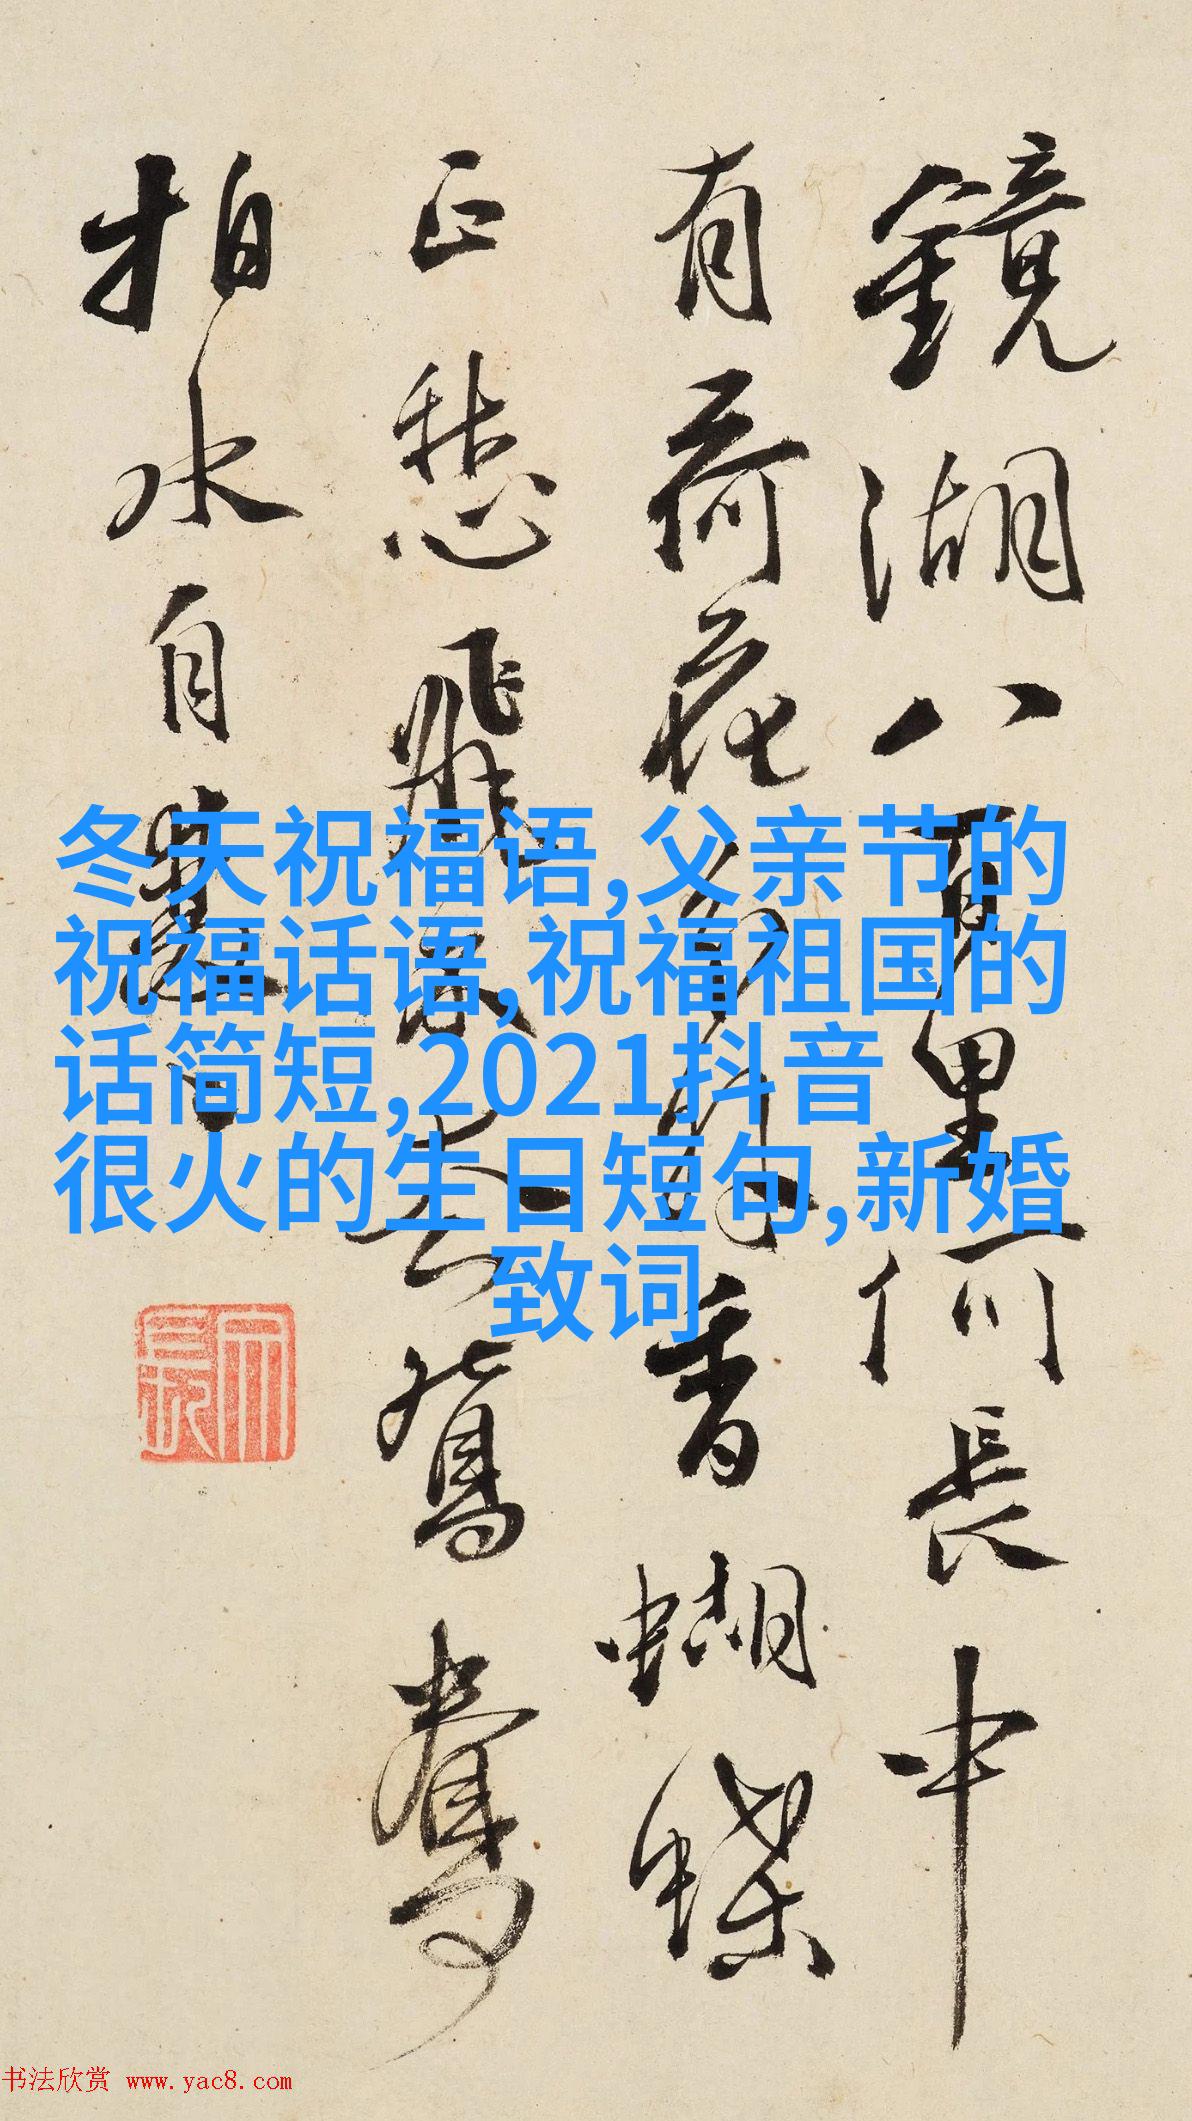 鏡湖八百里何長中
有荷花分外香蝴蝶
正愁飛不去鴛鴦
拍水自雙
冬天祝福语,父亲节的
祝福话语,祝福祖国的
话简短,2021抖音
很火的生日短句,新婚
致词
书法欣赏 www.yac8.com